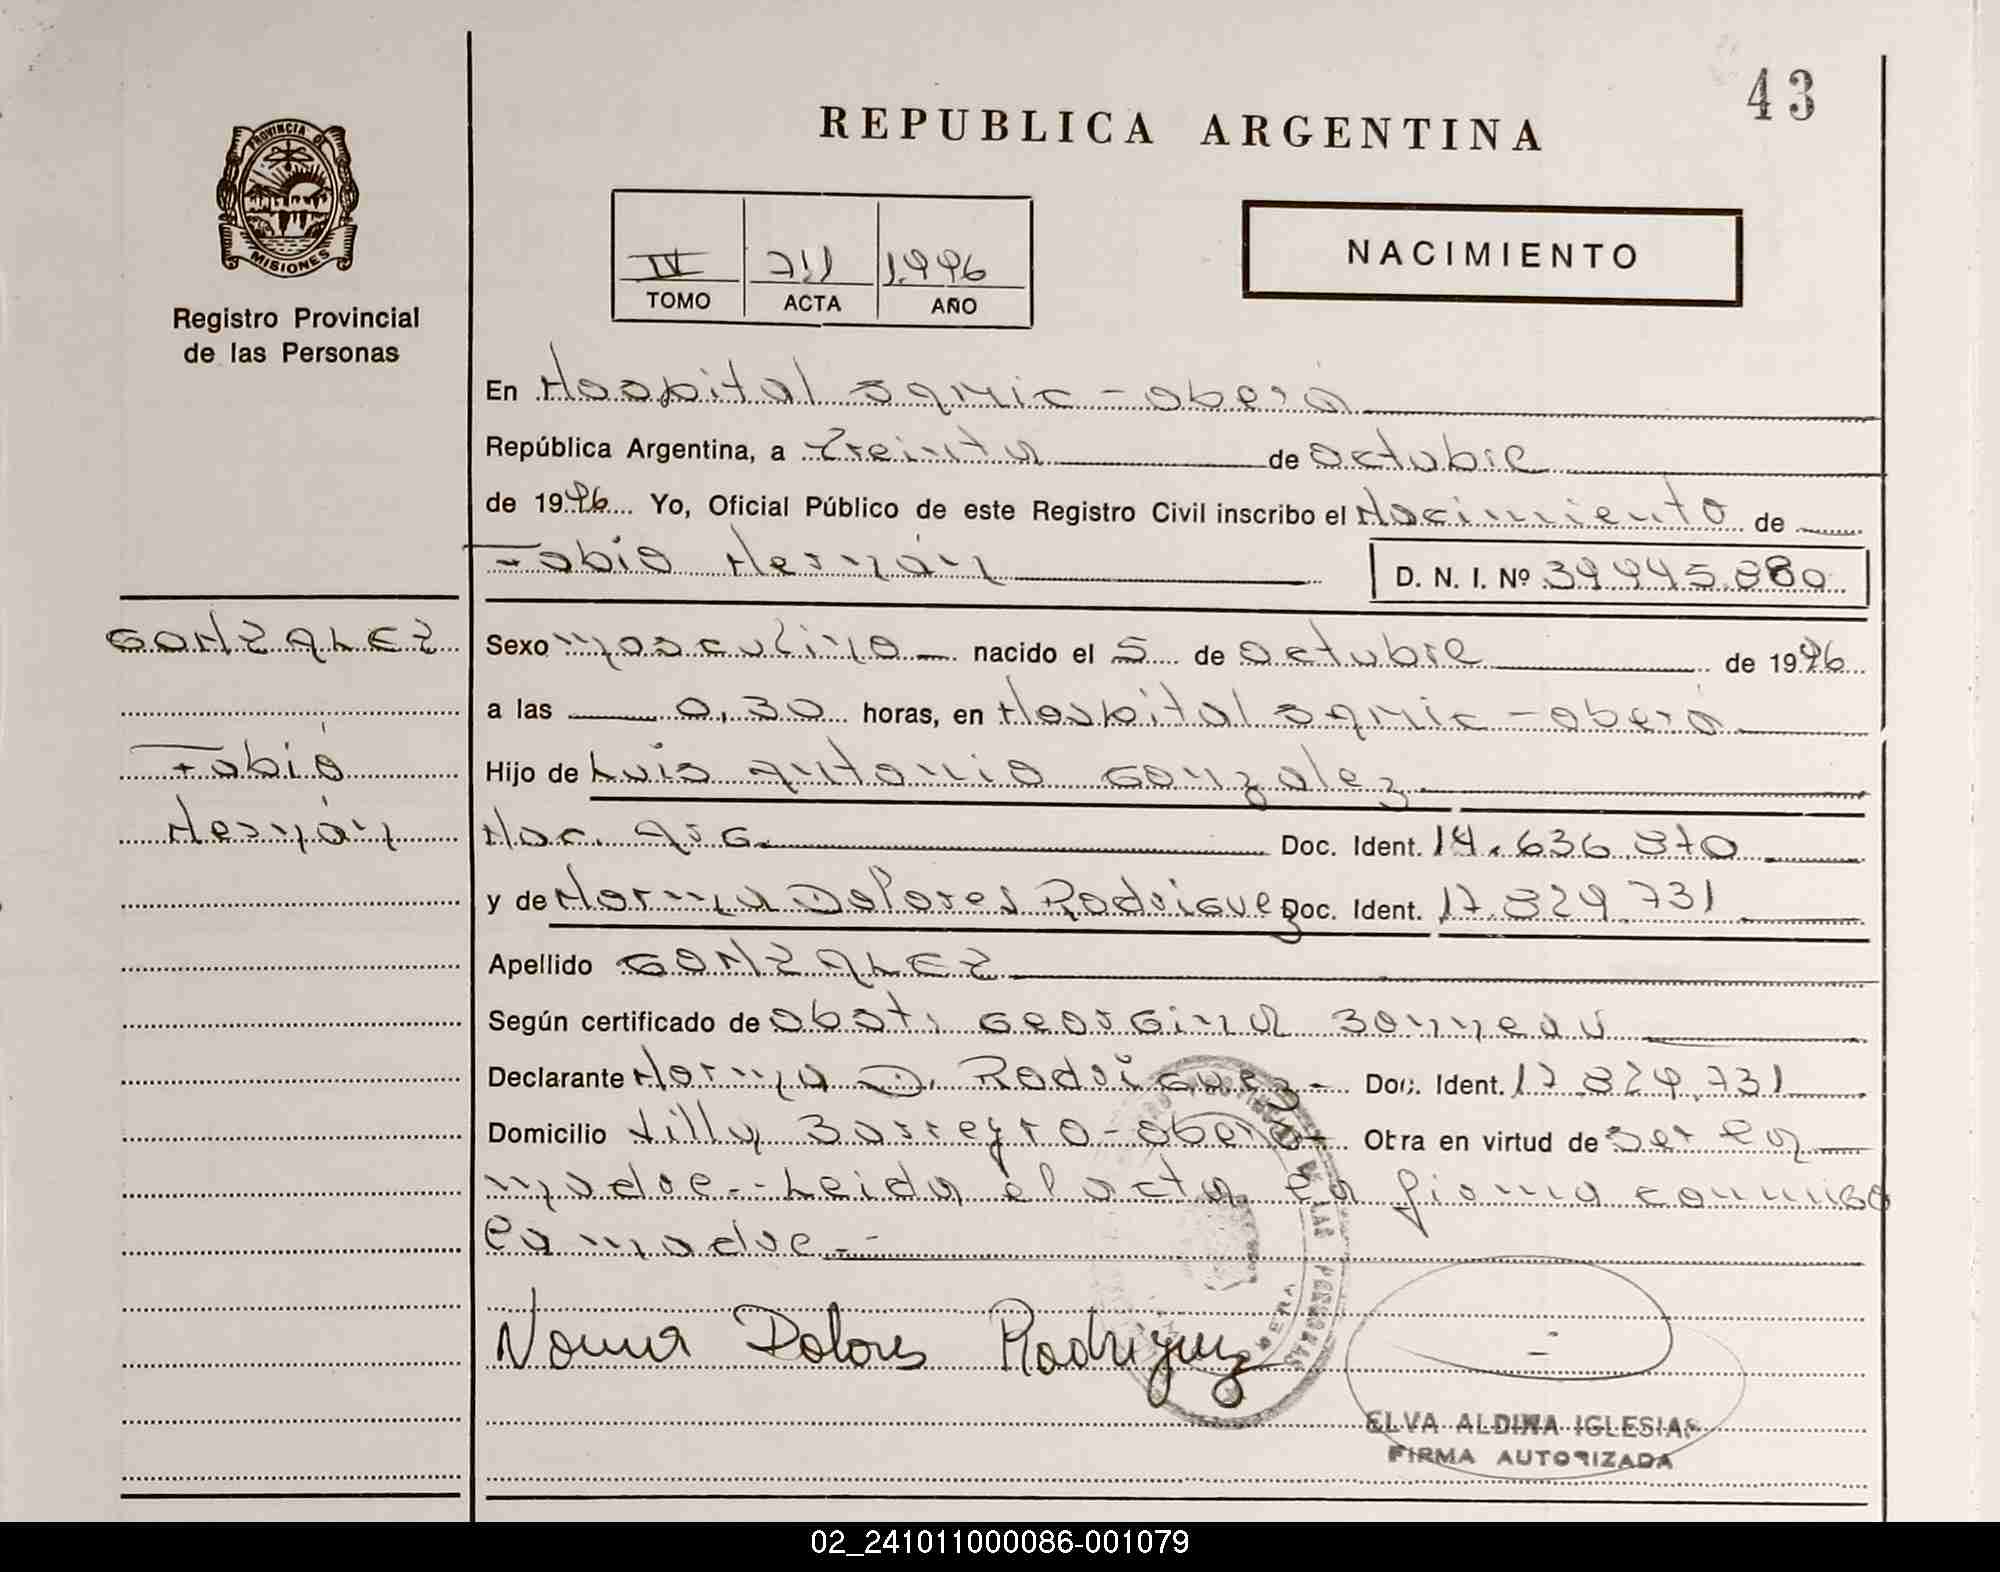 43
REPUBLICA ARGENTINA
PROVINCIA DE
MISIONES
Registro Provincial
de las Personas
IV 711 1996
TOMO ACTA AÑO
NACIMIENTO
En Hospital Samic - Oberá
República Argentina, a Treinta de Octubre
de 1996 Yo, Oficial Público de este Registro Civil inscribo el Nacimiento de
Fabio Hernán
D. N. I. Nº 39.945.880
GONZALEZ
Fabio
Hernán
Sexo masculino nacido el 5 de Octubre de 1996
a las 0,30 horas, en Hospital Samic - Oberá
Hijo de Luis Antonio Gonzalez
Nac. Arg. Doc. Ident. 14.636.870
y de Norma Dolores Rodriguez Doc. Ident. 17.829.731
Apellido GONZALEZ
Según certificado de Obst. Georgina Bonneau
Declarante Norma D. Rodriguez - Doc. Ident. 17.829.731
Domicilio Villa Barreyro - Oberá - Obra en virtud de Ser la
madre - Leida el acta la firma conmigo
la madre. -
Norma Dolores Rodriguez
DE LAS PERSONAS
OBERA
ELVA ALDINA IGLESIAS
FIRMA AUTORIZADA
02_241011000086-001079